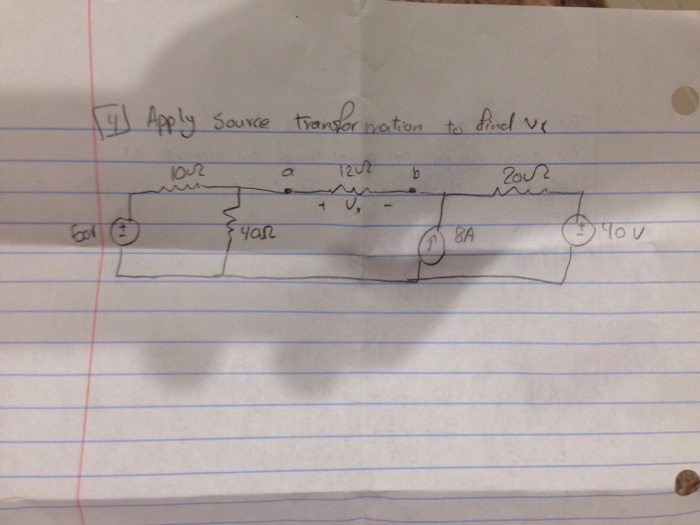 4 Apply Source transformation to find Vx
10Ω a 12Ω b 20Ω
+ Vx -
40Ω 8A 40V